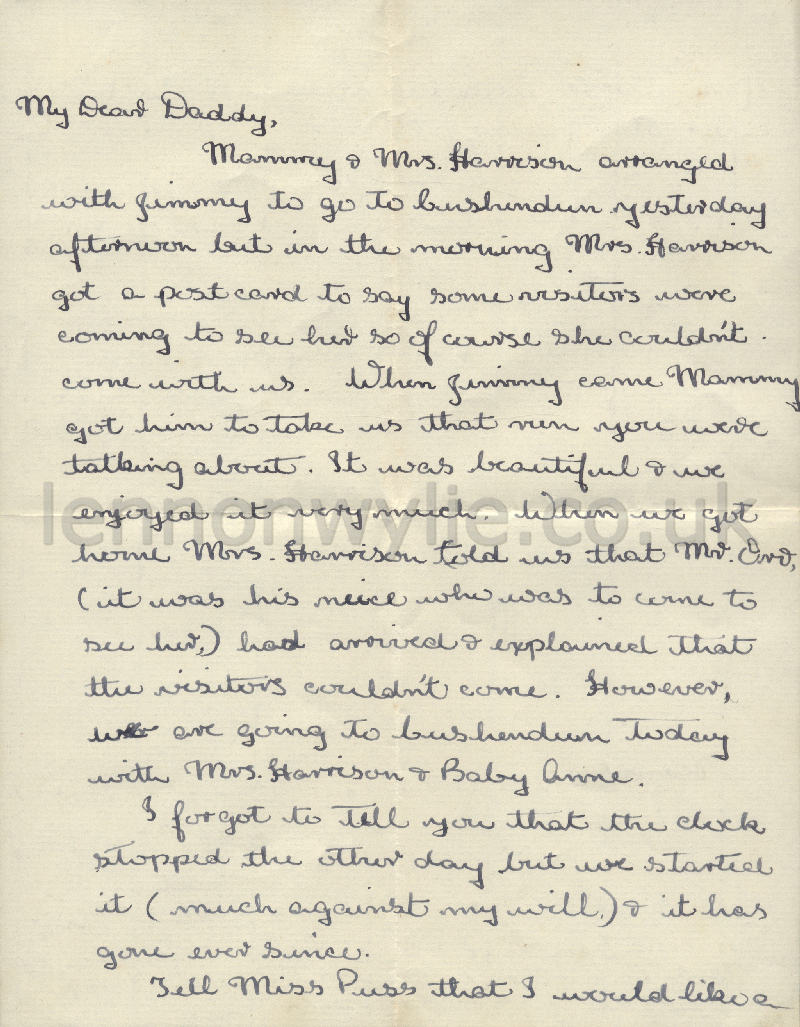 My Dear Daddy,
Mammy & Mrs. Harrison arranged
with Jimmy to go to Cushendun yesterday
afternoon but in the morning Mrs. Harrison
got a post card to say some visitors were
coming to see her so of course she couldn't
come with us. When Jimmy came Mammy
got him to take us that run you were
talking about. It was beautiful & we
enjoyed it very much. When we got
lennonwylie.co.uk
home Mrs. Harrison told us that Mr. Orr,
(it was his neice who was to come to
see her,) had arrived & explained that
the visitors couldn't come. However,
we are going to Cushendun today
with Mrs. Harrison & Baby Anne.
I forgot to tell you that the clock
stopped the other day but we started
it (much against my will,) & it has
gone ever since.
Tell Miss Puss that I would like a